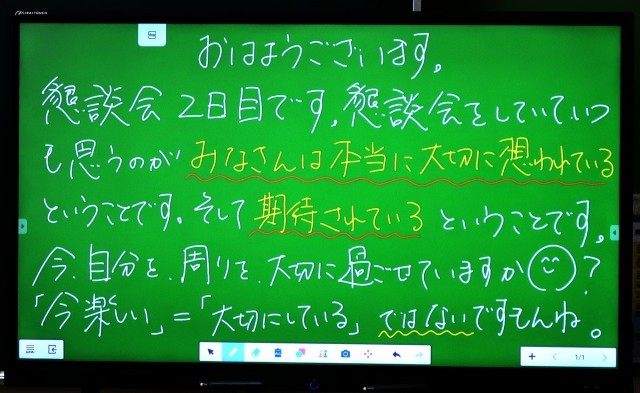 おはようございます。
懇談会2日目です。懇談会をしていていつ
も思うのが みなさんは本当に大切に想われている
ということです。そして期待されているということです。
今、自分を、周りを、大切に過ごせていますか?
「今楽しい」=「大切にしている」ではないですもんね。
1/1